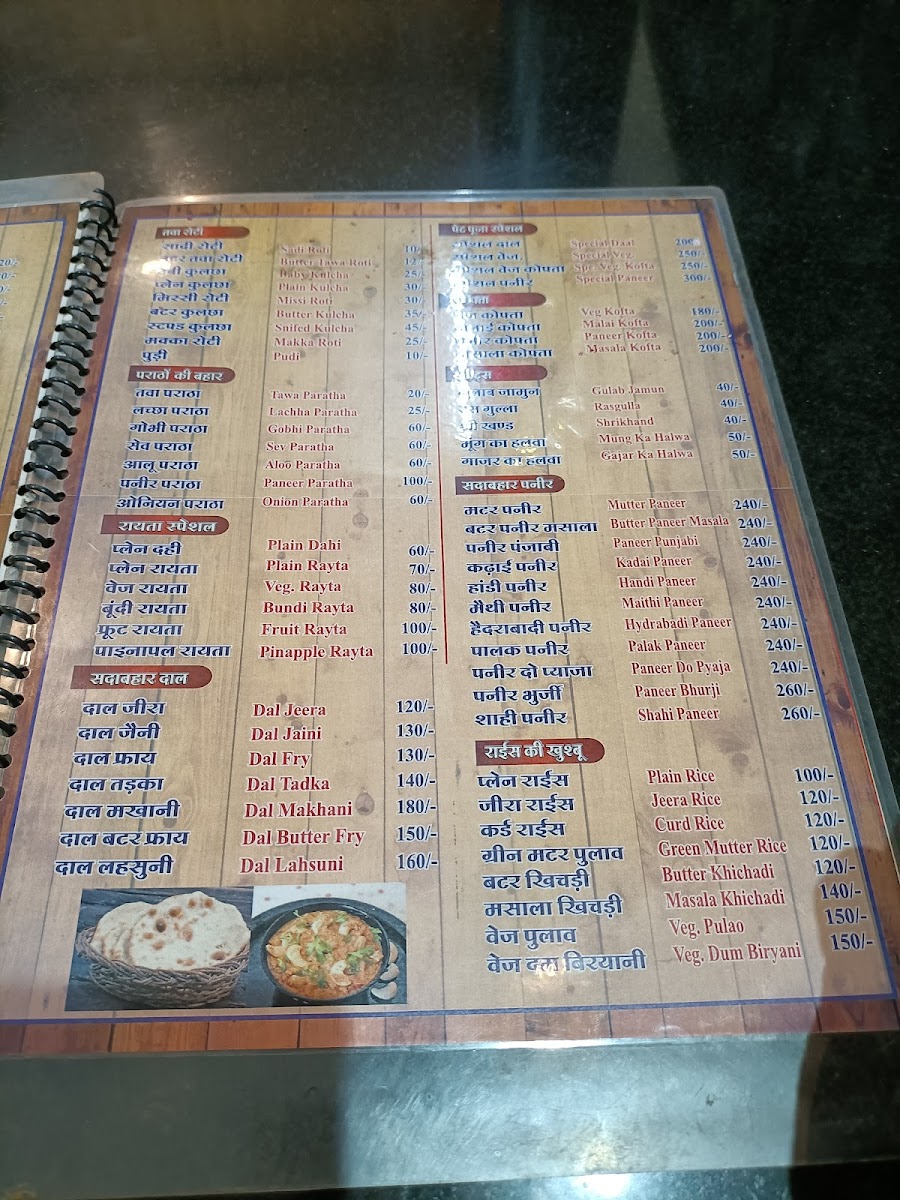 तवा रोटी
सादी रोटी Sadi Roti 10/-
बटर तवा रोटी Butter Tawa Roti 12/-
बेबी कुलछा Baby Kulcha 25/-
प्लेन कुलछा Plain Kulcha 30/-
मिस्सी रोटी Missi Roti 30/-
बटर कुलछा Butter Kulcha 35/-
स्टफ्ड कुलछा Snifed Kulcha 45/-
मक्का रोटी Makka Roti 25/-
पुड़ी Pudi 10/-
पराठों की बहार
तवा पराठा Tawa Paratha 20/-
लच्छा पराठा Lachha Paratha 25/-
गोभी पराठा Gobhi Paratha 60/-
सेव पराठा Sev Paratha 60/-
आलू पराठा Aloo Paratha 60/-
पनीर पराठा Paneer Paratha 100/-
ओनियन पराठा Onion Paratha 60/-
रायता स्पैशल
प्लेन दही Plain Dahi 60/-
प्लेन रायता Plain Rayta 70/-
वेज रायता Veg. Rayta 80/-
बूंदी रायता Bundi Rayta 80/-
फ्रूट रायता Fruit Rayta 100/-
पाइनापल रायता Pinapple Rayta 100/-
सदाबहार दाल
दाल जीरा Dal Jeera 120/-
दाल जैनी Dal Jaini 130/-
दाल फ्राय Dal Fry 130/-
दाल तड़का Dal Tadka 140/-
दाल मखानी Dal Makhani 180/-
दाल बटर फ्राय Dal Butter Fry 150/-
दाल लहसुनी Dal Lahsuni 160/-
पेट पूजा स्पेशल
स्पेशल दाल Special Daal 200/-
स्पेशल वेज Special Veg 250/-
स्पेशल वेज कोपता Spe. Veg. Kofta 250/-
स्पेशल पनीर Special Paneer 300/-
वेज कोपता Veg Kofta 180/-
मलाई कोपता Malai Kofta 200/-
पनीर कोपता Paneer Kofta 200/-
मसाला कोपता Masala Kofta 200/-
गुलाब जामुन Gulab Jamun 40/-
रस गुल्ला Rasgulla 40/-
श्री खण्ड Shrikhand 40/-
मूंग का हलवा Mung Ka Halwa 50/-
गाजर का हलवा Gajar Ka Halwa 50/-
सदाबहार पनीर
मटर पनीर Mutter Paneer 240/-
बटर पनीर मसाला Butter Paneer Masala 240/-
पनीर पंजाबी Paneer Punjabi 240/-
कढ़ाई पनीर Kadai Paneer 240/-
हांडी पनीर Handi Paneer 240/-
मैथी पनीर Maithi Paneer 240/-
हैदराबादी पनीर Hydrabadi Paneer 240/-
पालक पनीर Palak Paneer 240/-
पनीर दो प्याजा Paneer Do Pyaja 240/-
पनीर भुर्जी Paneer Bhurji 260/-
शाही पनीर Shahi Paneer 260/-
राईस की खुश्बू
प्लेन राईस Plain Rice 100/-
जीरा राईस Jeera Rice 120/-
कर्ड राईस Curd Rice 120/-
ग्रीन मटर पुलाव Green Mutter Rice 120/-
बटर खिचड़ी Butter Khichadi 120/-
मसाला खिचड़ी Masala Khichadi 140/-
वेज पुलाव Veg. Pulao 150/-
वेज दम बिरयानी Veg. Dum Biryani 150/-